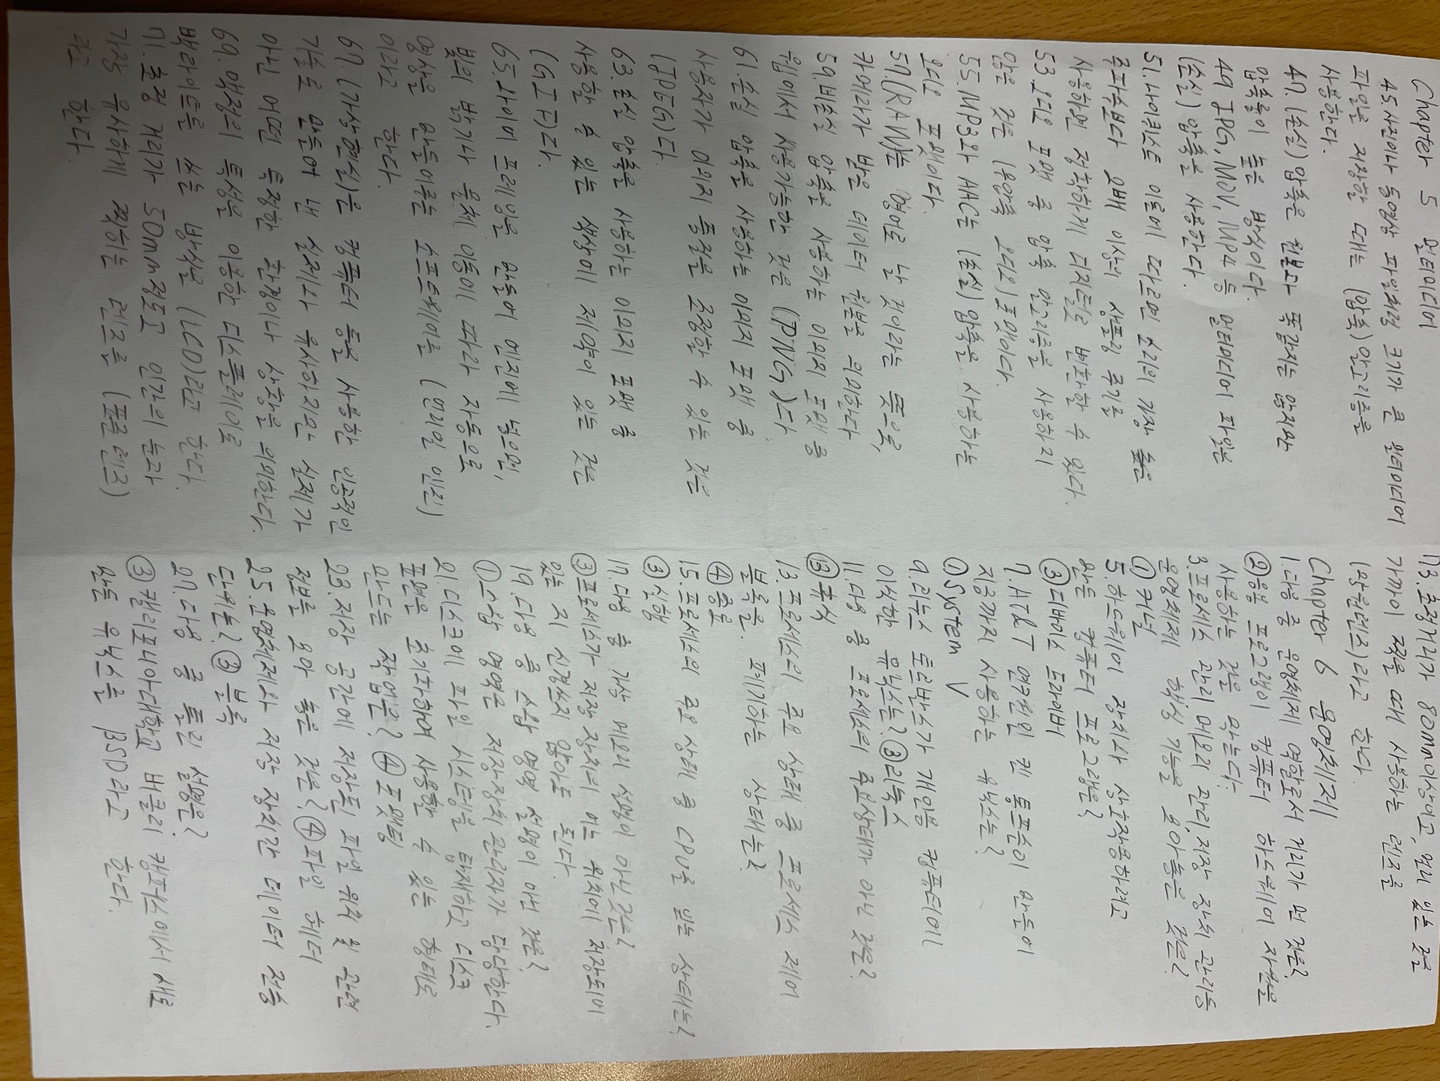 Chapter 5 멀티미디어
45.사진이나 동영상 파일처럼 크기가 큰 멀티미디어
파일을 저장할 때는 (압축)알고리즘을
사용한다.
47.(손실)압축은 원본과 똑같지는 않지만
압축률이 높은 방식이다.
49 JPG, MOV, MP4 등 멀티미디어 파일은
(손실)압축을 사용한다.
51.나이퀴스트 이론에 따르면 소리의 가장 높은
주파수보다 2배 이상의 샘플링 주기를
사용하면 정확하게 디지털로 변환할 수 있다.
53.오디오 포맷 중 압축 알고리즘을 사용하지
않은 것은 (무압축 오디오)포맷이다.
55.MP3와 AAC는 (손실)압축을 사용하는
오디오 포맷이다.
57.(RAW)는 영어로 날 것이라는 뜻으로,
카메라가 받은 데이터 원본을 의미한다
59.비손실 압축을 사용하는 이미지 포맷 중
웹에서 사용가능한 것은 (PNG)다.
61.손실 압축을 사용하는 이미지 포맷 중
사용자가 이미지 품질을 조정할 수 있는 것은
(JPEG)다.
63.손실 압축을 사용하는 이미지 포맷 중
사용할 수 있는 색상에 제약이 있는 것은
(GIF)다.
65.와이어 프레임을 만들어 엔진에 넣으면,
빛의 밝기나 물체 이동에 따라 자동으로
영상을 만들어주는 소프트웨어를 (언리얼 엔진)
이라고 한다.
67.(가상현실)은 컴퓨터 등을 사용한 인공적인
기술로 만들어 낸 실제와 유사하지만 실제가
아닌 어떤 특정한 환경이나 상황을 의미한다.
69.액정의 특성을 이용한 디스플레이로
백라이트를 쓰는 방식을 (LCD)라고 한다.
71.초점 거리가 50mm정도고 인간의 눈과
가장 유사하게 찍히는 렌즈를 (표준렌즈)
라고 한다.
73.초점거리가 80mm이상이고, 멀리 있는 것을
가까이 찍을 때 사용하는 렌즈를
(망원렌즈)라고 한다.
Chapter 6 운영체제
1.다음 중 운영체제 역할로서 거리가 먼 것은?
②응용 프로그램이 컴퓨터 하드웨어 자원을
사용하는 것을 막는다.
3.프로세스 관리,메모리 관리,저장 장치 관리등
운영체제 핵심 기능을 모아놓은 것은?
①커널
5.하드웨어 장치와 상호작용하려고
만든 컴퓨터 프로그램은?
③디바이스 드라이버
7.AT&T 연구원인 켄 톰프슨이 만들어
지금까지 사용하는 유닉스는?
①System V
9.리누스 토르발스가 개인용 컴퓨터에
이식한 유닉스는?③리눅스
11.다음 중 프로세스의 주요상태가 아닌 것은?
③휴식
13.프로세스의 주요 상태 중 프로세스 제어
블록을 폐기하는 상태는?
④종료
15.프로세스의 주요 상태 중 CPU를 얻는 상태는?
③실행
17.다음 중 가상 메모리 설명이 아닌것은?
③프로세스가 저장 장치의 어느 위치에 저장되어
있는 지 신경쓰지 않아도 된다.
19.다음 중 스왑 영역 설명이 아닌 것은?
①스왑 영역은 저장장치관리자가 담당한다.
21.디스크에 파일 시스템을 탑재하고 디스크
표면을 초기화하여 사용할 수 있는 형태로
만드는 작업은? ④포맷팅
23.저장 공간에 저장된 파일 위치 및 관련
정보를 모아 놓은 것은?④파일 헤더
25.운영체제와 저장 장치간 데이터 전송
단위는?③블록
27.다음 중 틀린 설명은?
③캘리포니아대학교 버클리 캠퍼스에서 새로
만든 유닉스를 BSD라고 한다.